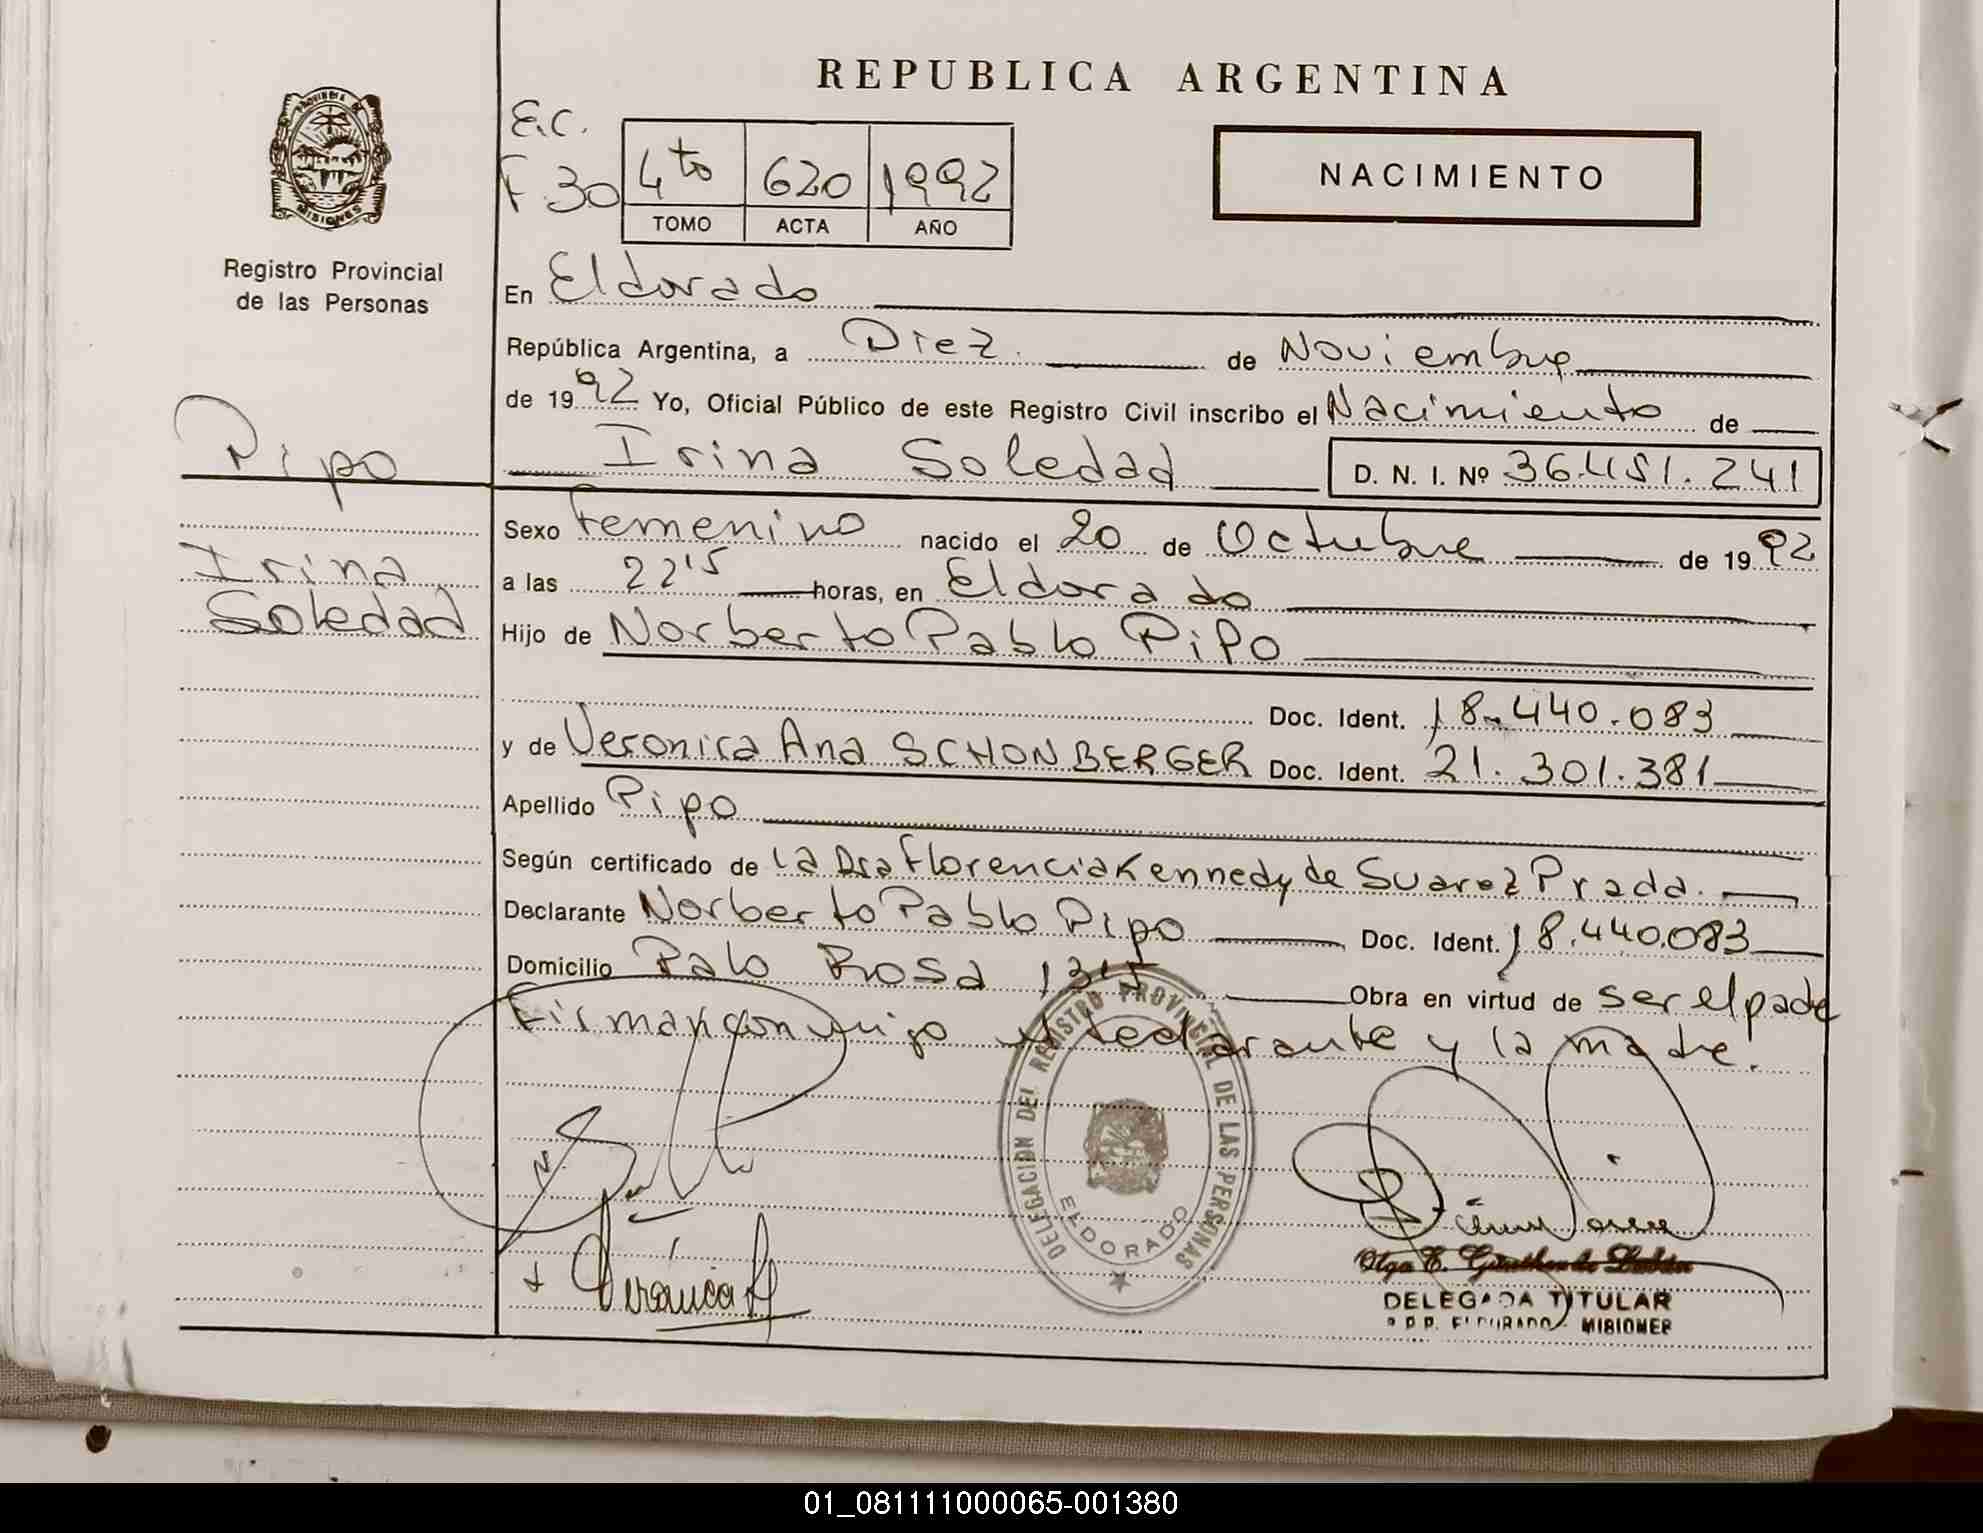 REPUBLICA ARGENTINA
E.C.
F.30
4to 620 1992
TOMO ACTA AÑO
NACIMIENTO
PROVINCIA DE MISIONES
Registro Provincial
de las Personas
En Eldorado
República Argentina, a Diez de Noviembre
de 1992 Yo, Oficial Público de este Registro Civil inscribo el Nacimiento de
Irina Soledad D. N. I. Nº 36.451.241
Pipo
Irina
Soledad
Sexo Femenino nacido el 20 de Octubre de 1992
a las 22'15 horas, en Eldorado
Hijo de Norberto Pablo Pipo
Doc. Ident. 18.440.083
y de Veronica Ana SCHONBERGER Doc. Ident. 21.301.381
Apellido Pipo
Según certificado de la Dra Florencia Kennedy de Suarez Prada.
Declarante Norberto Pablo Pipo Doc. Ident. 18.440.083
Domicilio Palo Rosa 134 Obra en virtud de ser el padre
Firman conmigo el declarante y la madre.
DELEGACION DEL REGISTRO PROVINCIAL DE LAS PERSONAS
ELDORADO
Verónica
Olga E.
DELEGADA TITULAR
ELDORADO MISIONES
01_081111000065-001380